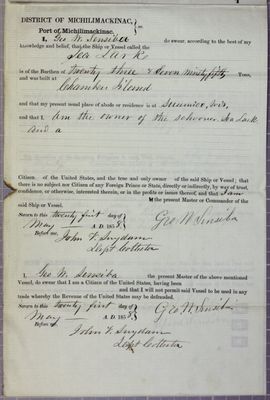 DISTRICT OF MICHILIMACKINAC,
Port of Michilimackinac. } ss.
I, Geo W. Sensiba do swear, according to the best of my
knowledge and belief, that the Ship or Vessel called the
Sea Lark
is of the Burthen of Twenty three & Seven Ninety fifths Tons,
and was built at
Chambers Island
and that my present usual place of abode or residence is at Suamico, Wis,
and that I am the owner of the schooner Sea Lark
and a
Citizen of the United States, and the true and only owner of the said Ship or Vessel; that
there is no subject nor Citizen of any Foreign Prince or State, directly or indirectly, by way of trust,
confidence, or otherwise, interested therein, or in the profits or issues thereof, and that I am
the present Master or Commander of the
said Ship or Vessel.
Sworn to this twenty first day of
May A. D. 185
Geo W Sensiba
Before me,
John V. Suydam
Dept Collector
I, Geo W. Sensiba the present Master of the above mentioned
Vessel, do swear that I am a Citizen of the United States, having been
and that I will not permit said Vessel to be used in any
trade whereby the Revenue of the United States may be defrauded.
Sworn to this twenty first day of
May A. D. 185
Geo W Sensiba
Before me,
John V. Suydam
Dept Collector